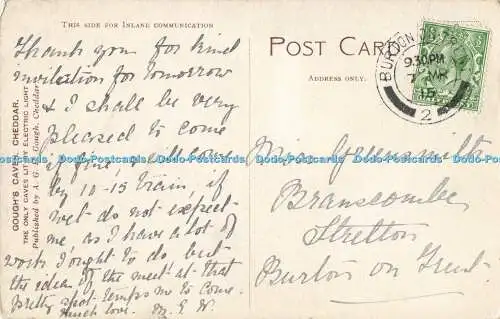 THIS SIDE FOR INLAND COMMUNICATION
Thank you for kind
invitation for tomorrow
& I shall be very
pleased to come
if fine, & will come
by 10-15 train, if
wet do not expect
me as I have a lot of
work I ought to do but
the idea of the meet at that
pretty spot tempts me to come.
much love. M. E. W.
GOUGH'S CAVES, CHEDDAR.
THE ONLY CAVES LIT BY ELECTRIC LIGHT
Published by A. G. H. Gough, Cheddar
POST CARD
ADDRESS ONLY.
BURTON
9.30PM
MR
15
2
Mrs Greensmith
Branscombe
Stretton
Burton on Trent.
Dodo-Postcards Dodo-Postcards Dodo-Postcards Dodo-Postcards Dodo-Postcards Dodo-Postcards